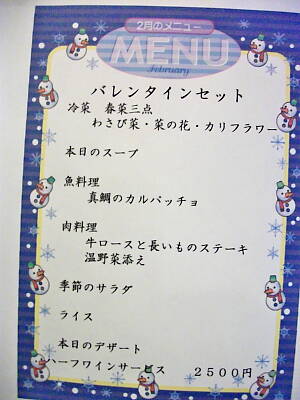 2月のメニュー
MENU
February
バレンタインセット
冷菜 春菜三点
わさび菜・菜の花・カリフラワー
本日のスープ
魚料理
真鯛のカルパッチョ
肉料理
牛ロースと長いものステーキ
温野菜添え
季節のサラダ
ライス
本日のデザート
ハーフワインサービス 2500円